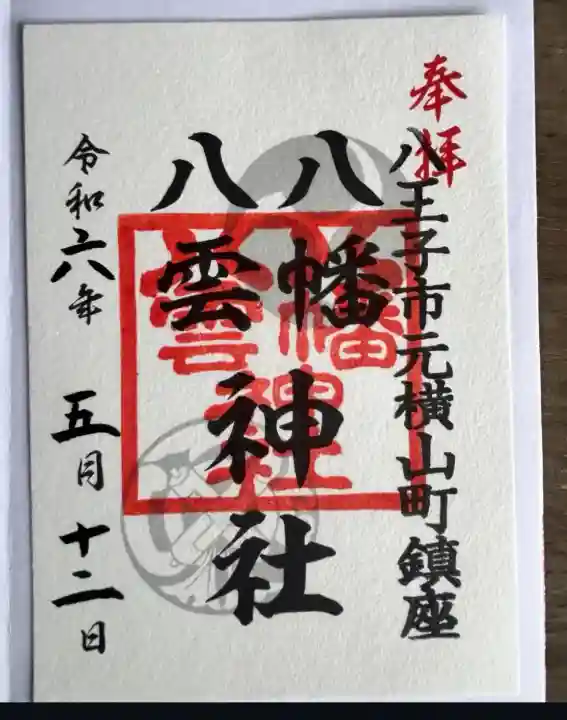 奉拝
八王子市元横山町鎮座
八幡
八雲
神社
令和六年 五月 十二日